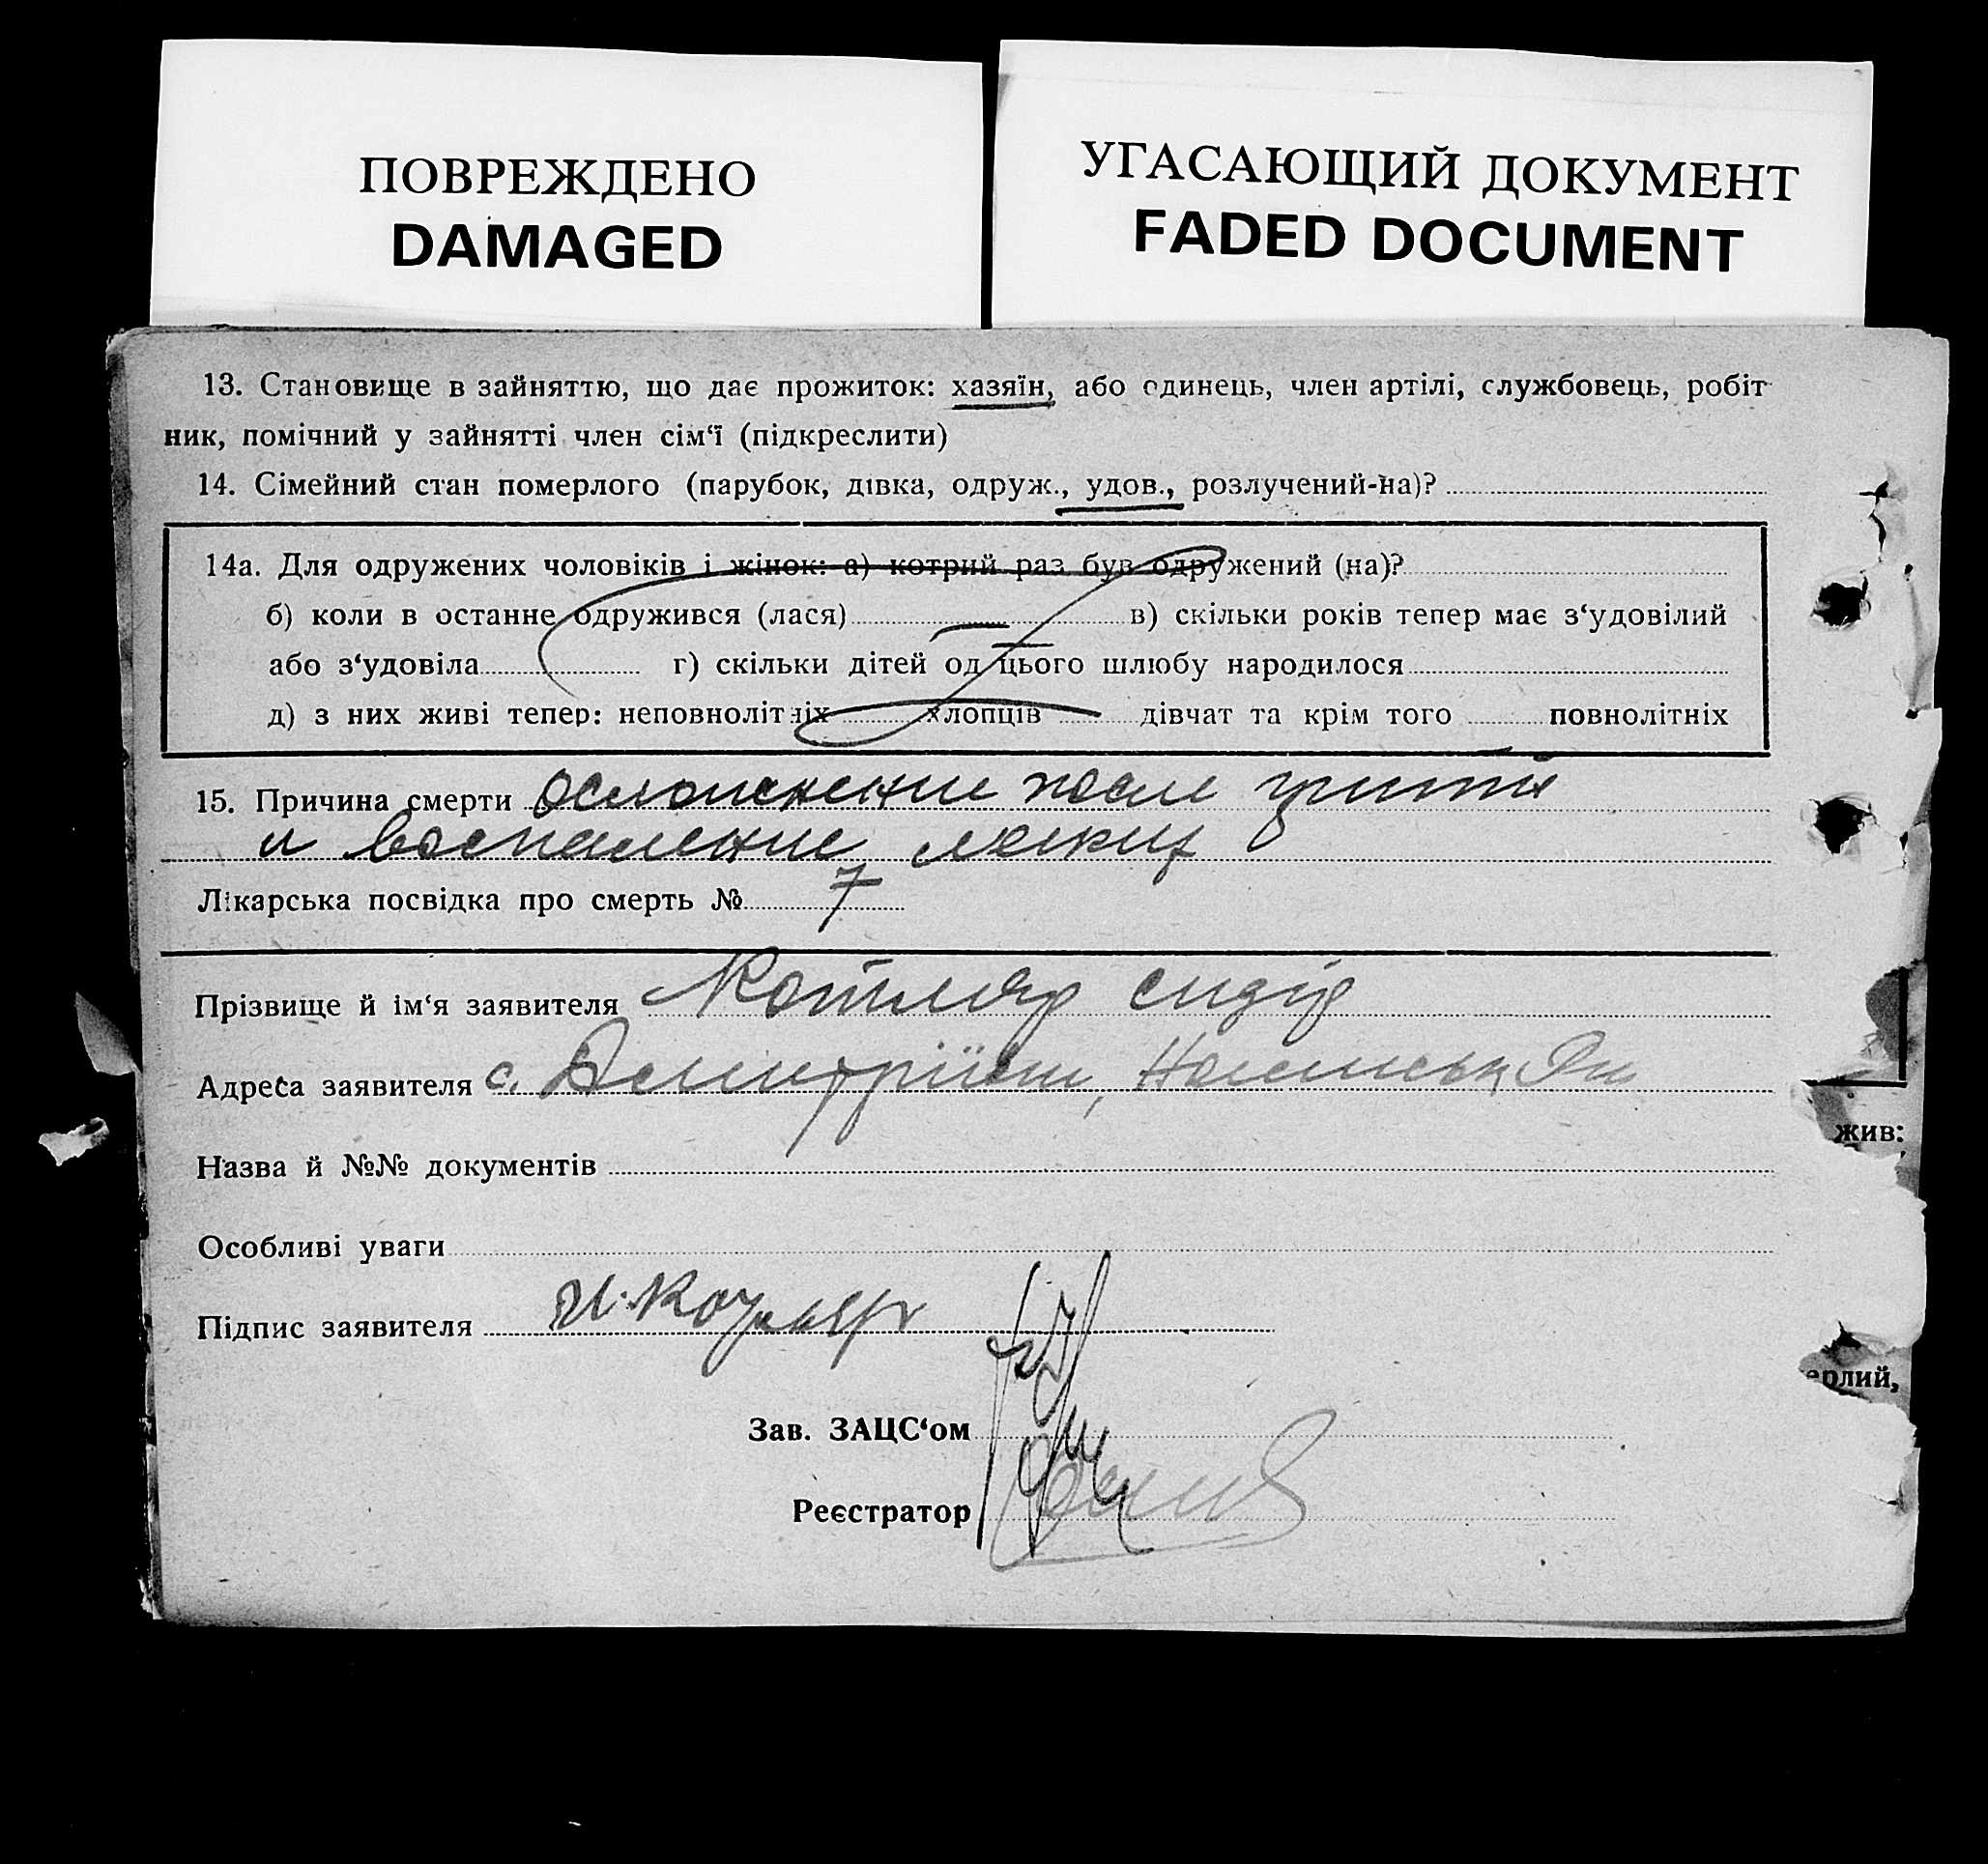 ПОВРЕЖДЕНО
DAMAGED
УГАСАЮЩИЙ ДОКУМЕНТ
FADED DOCUMENT
13. Становище в зайняттю, що дає прожиток: хазяїн, або одинець, член артілі, службовець, робіт
ник, помічний у зайнятті член сім‘ї (підкреслити)
14. Сімейний стан померлого (парубок, дівка, одруж., удов., розлучений-на)?
14а. Для одружених чоловіків і жінок: а) котрий раз був одружений (на)?
б) коли в останне одружився (лася) в) скільки років тепер має з‘удовілий
або з‘удовіла г) скільки дітей од цього шлюбу народилося
д) з них живі тепер: неповнолітніх хлопців дівчат та крім того повнолітніх
15. Причина смерти осложнение после гриппа
и воспаление легких
Лікарська посвідка про смерть № 7
Прізвище й ім‘я заявителя Котляр Сидір
Адреса заявителя с.
Назва й №№ документів
Особливі уваги
Підпис заявителя И. Котляр
Зав. ЗАЦС‘ом
Реєстратор
жив:
ерлий,